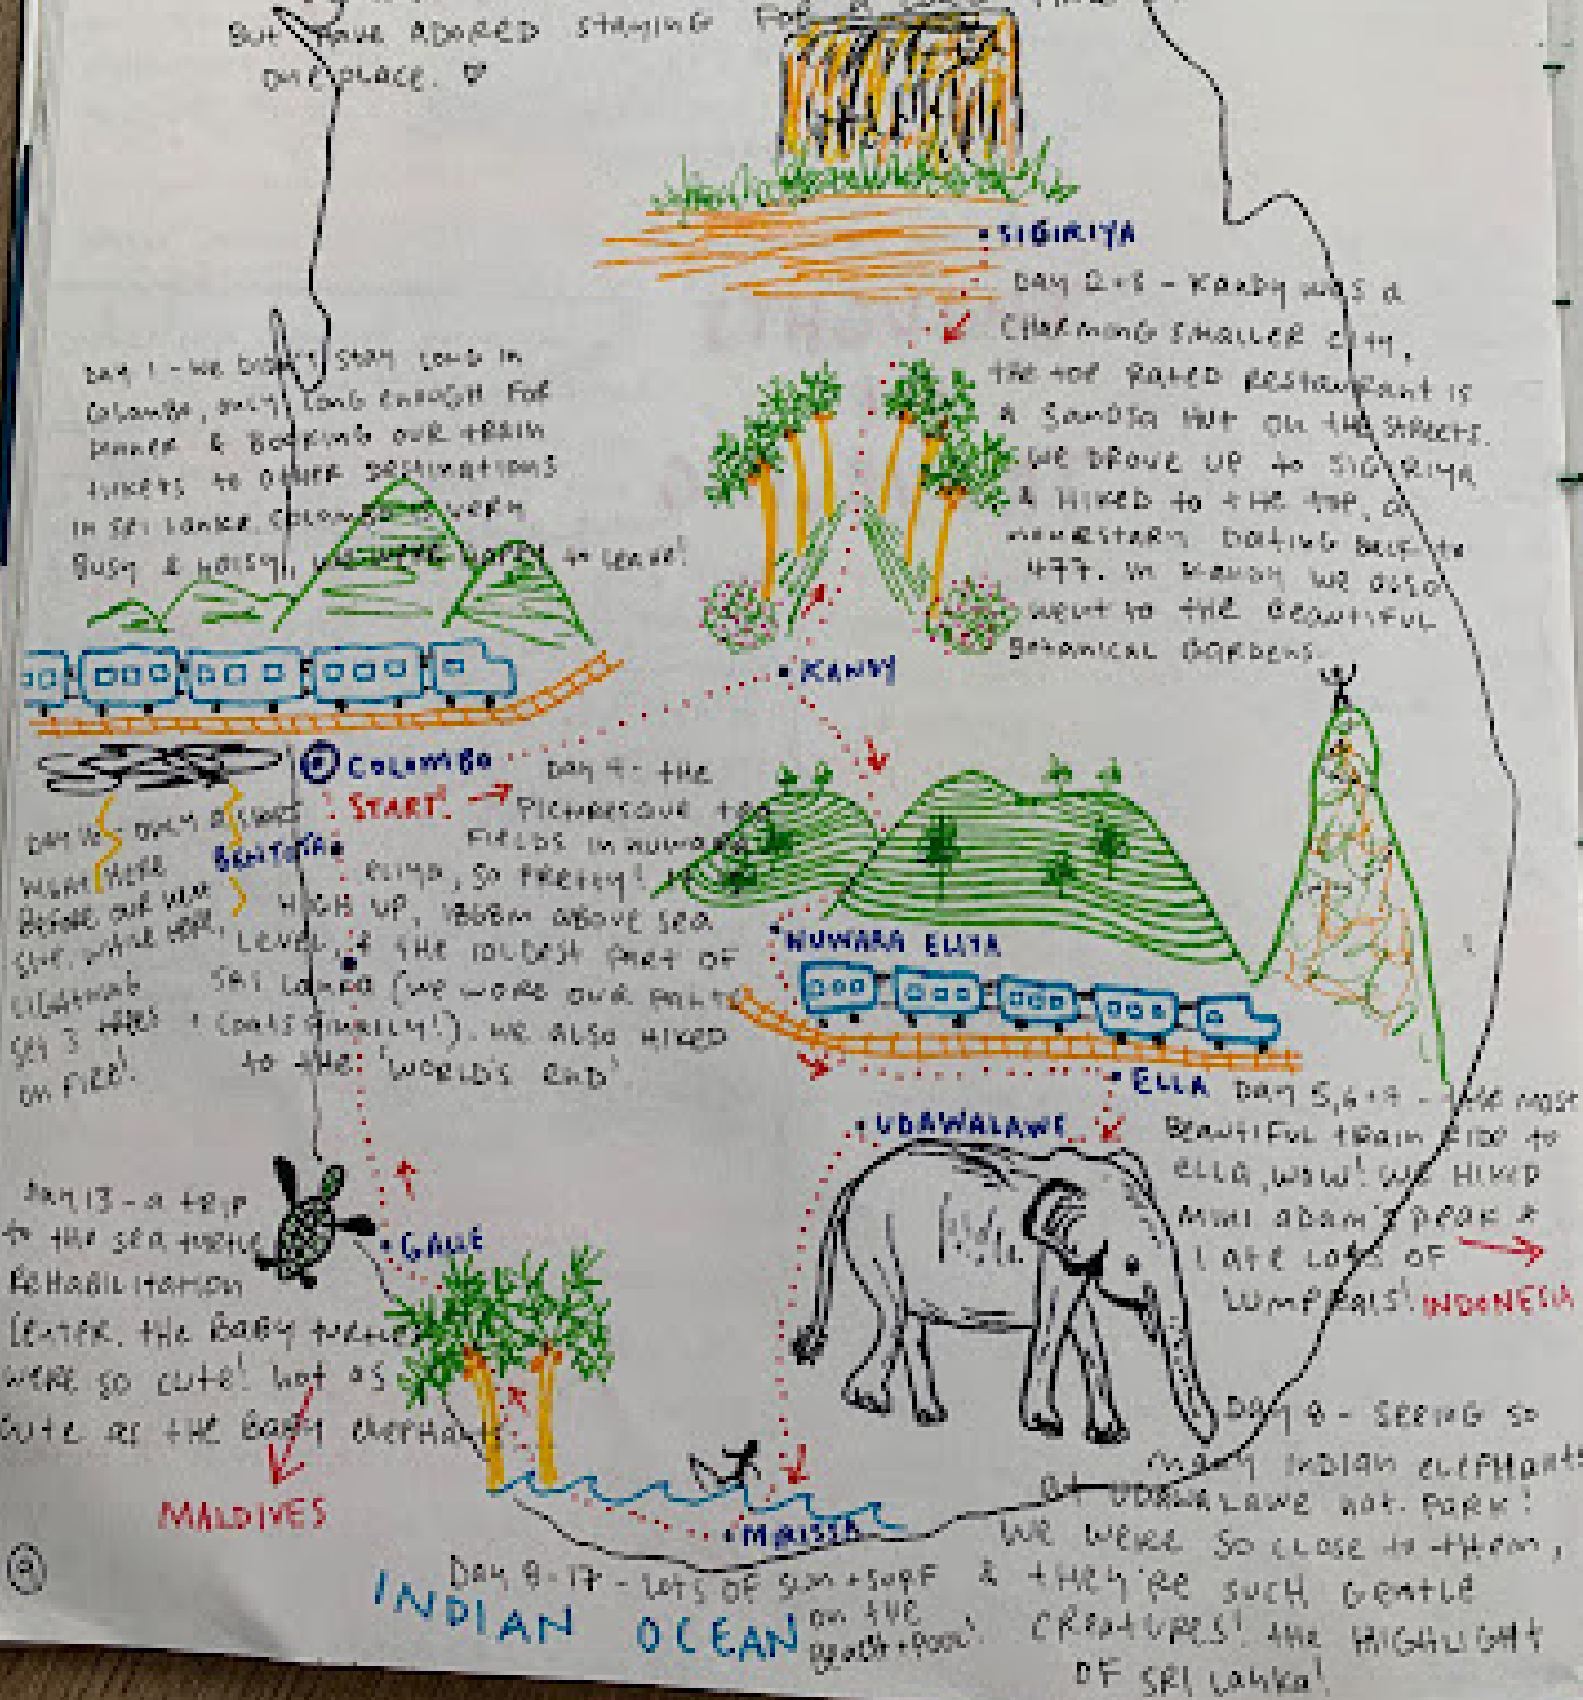 But have ADORED staying FOR A
one place. ♡
• SIGIRIYA
Day 2+3 - Kandy was a
CHARMING SMALLER city,
the top RATED RESTAURANT is
a Samosa Hut on the streets.
we DROVE up to SIGIRIYA
& HIKED to the top, a
Dating back to
477. In Kandy we also
went to the BEAUTIFUL
Botanical GARDENS.
Day 1 - We Didn't stay LONG in
Colombo, only long enough FOR
Dinner & Booking our train
tickets to other Destinations
in Sri Lanka. Colombo is very
Busy & noisy, we were happy to leave!
• KANDY
COLOMBO
START!
Day 4 - the
PICTURESQUE tea
FIELDS in Nuwara
Eliya, SO PRETTY! It is
HIGH UP, 1868m above sea
Level, & the coldest part of
Sri Lanka (we wore our pants
+ coats finally!). We also HIKED
to the 'WORLD'S END'.
- only a short
night HERE
BEFORE our new
. While HERE,
LIGHTNING
set 3 trees
on FIRE!
BENTOTA
• NUWARA ELIYA
• ELLA
Day 5,6+7 - the most
BEAUTIFUL train RIDE to
ELLA, wow! We HIKED
mini adam's peak &
ate lots OF
INDONESIA
• UDAWALAWE
Day 13 - a trip
to the sea turtle
REHABILITATION
Center. the BABY turtles
were so cute! not as
cute as the BABY elephants.
• GALLE
MALDIVES
• MIRISSA
Day 8 - SEEING SO
many INDIAN elephants
at UDAWALAWE nat. PARK!
We were so close to them,
& they're such GENTLE
CREATURES! the HIGHLIGHT
OF SRI LANKA!
Day 8-17 - lots OF sun + surf
on the
Beach + Pool!
INDIAN OCEAN